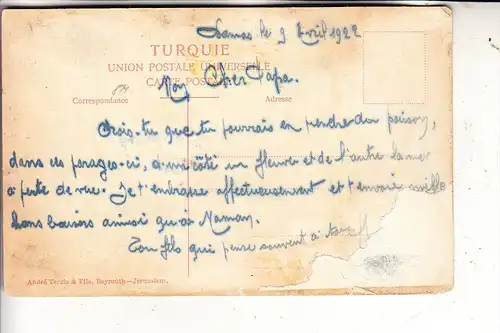 Damas le 9 Avril 1922
TURQUIE
UNION POSTALE UNIVERSELLE
CARTE POSTALE
Correspondance
Adresse
Mon Cher Papa.
Crois-tu que tu pourrais en prendre du poison,
dans ces parages-ci, d'un côté un fleuve et de l'autre la mer
à perte de vue. Je t'embrasse affectueusement et t'envoie mille
bons baisers ainsi qu'à Maman.
Ton fils qui pense souvent à
André Terzis & Fils, Beyrouth—Jerusalem.